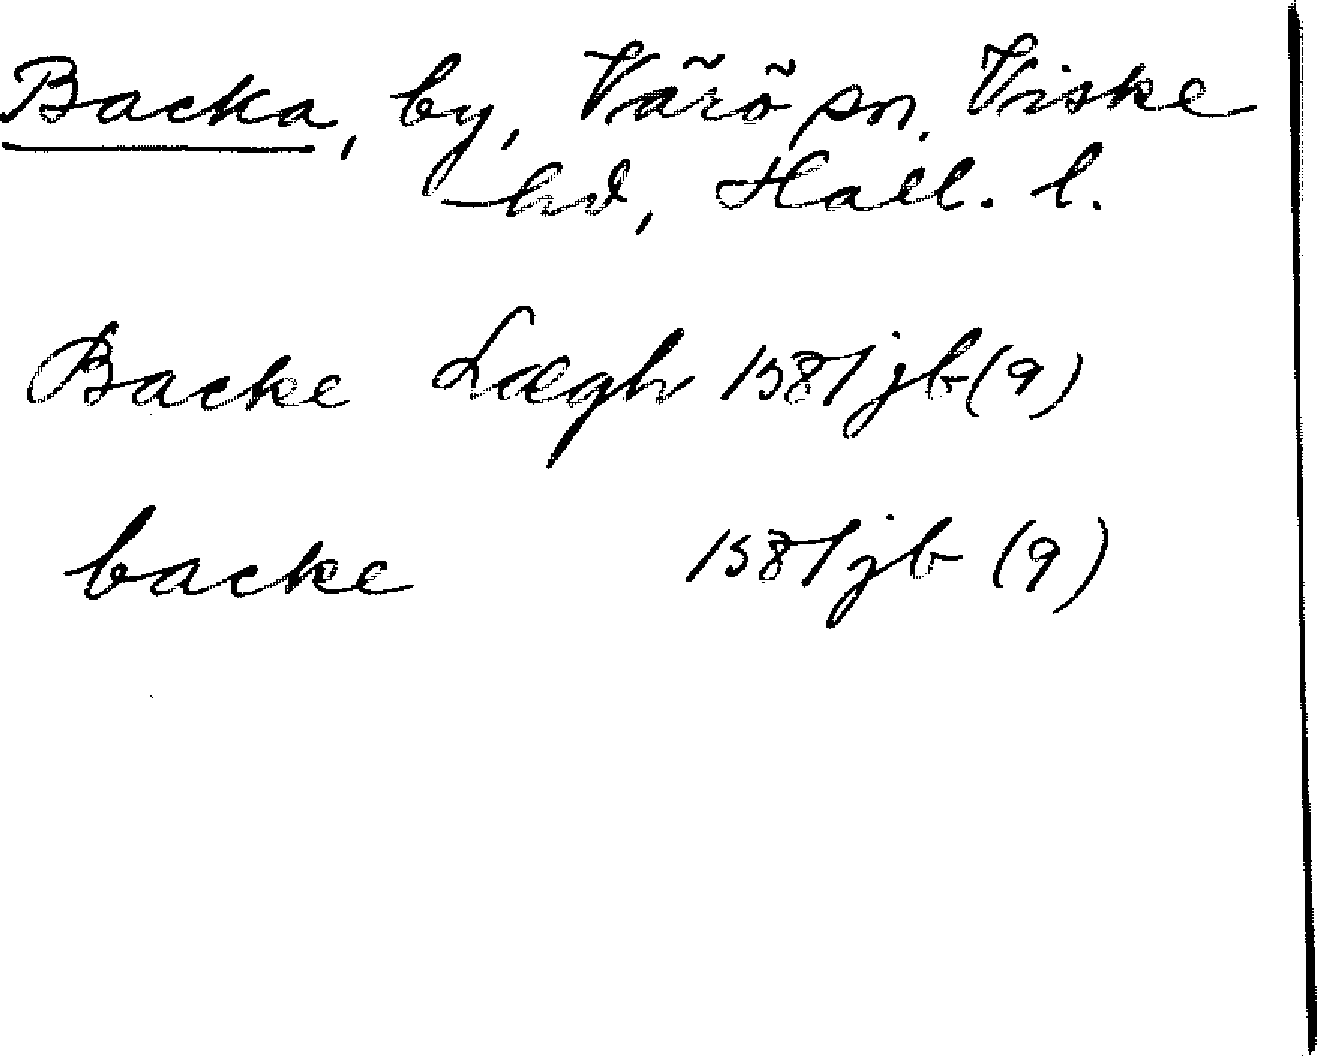 Backa, by, Värö sn, Viske
hd, Hall. l.
Backe Lægh 1581 jb (9)
backe 1581 jb (9)